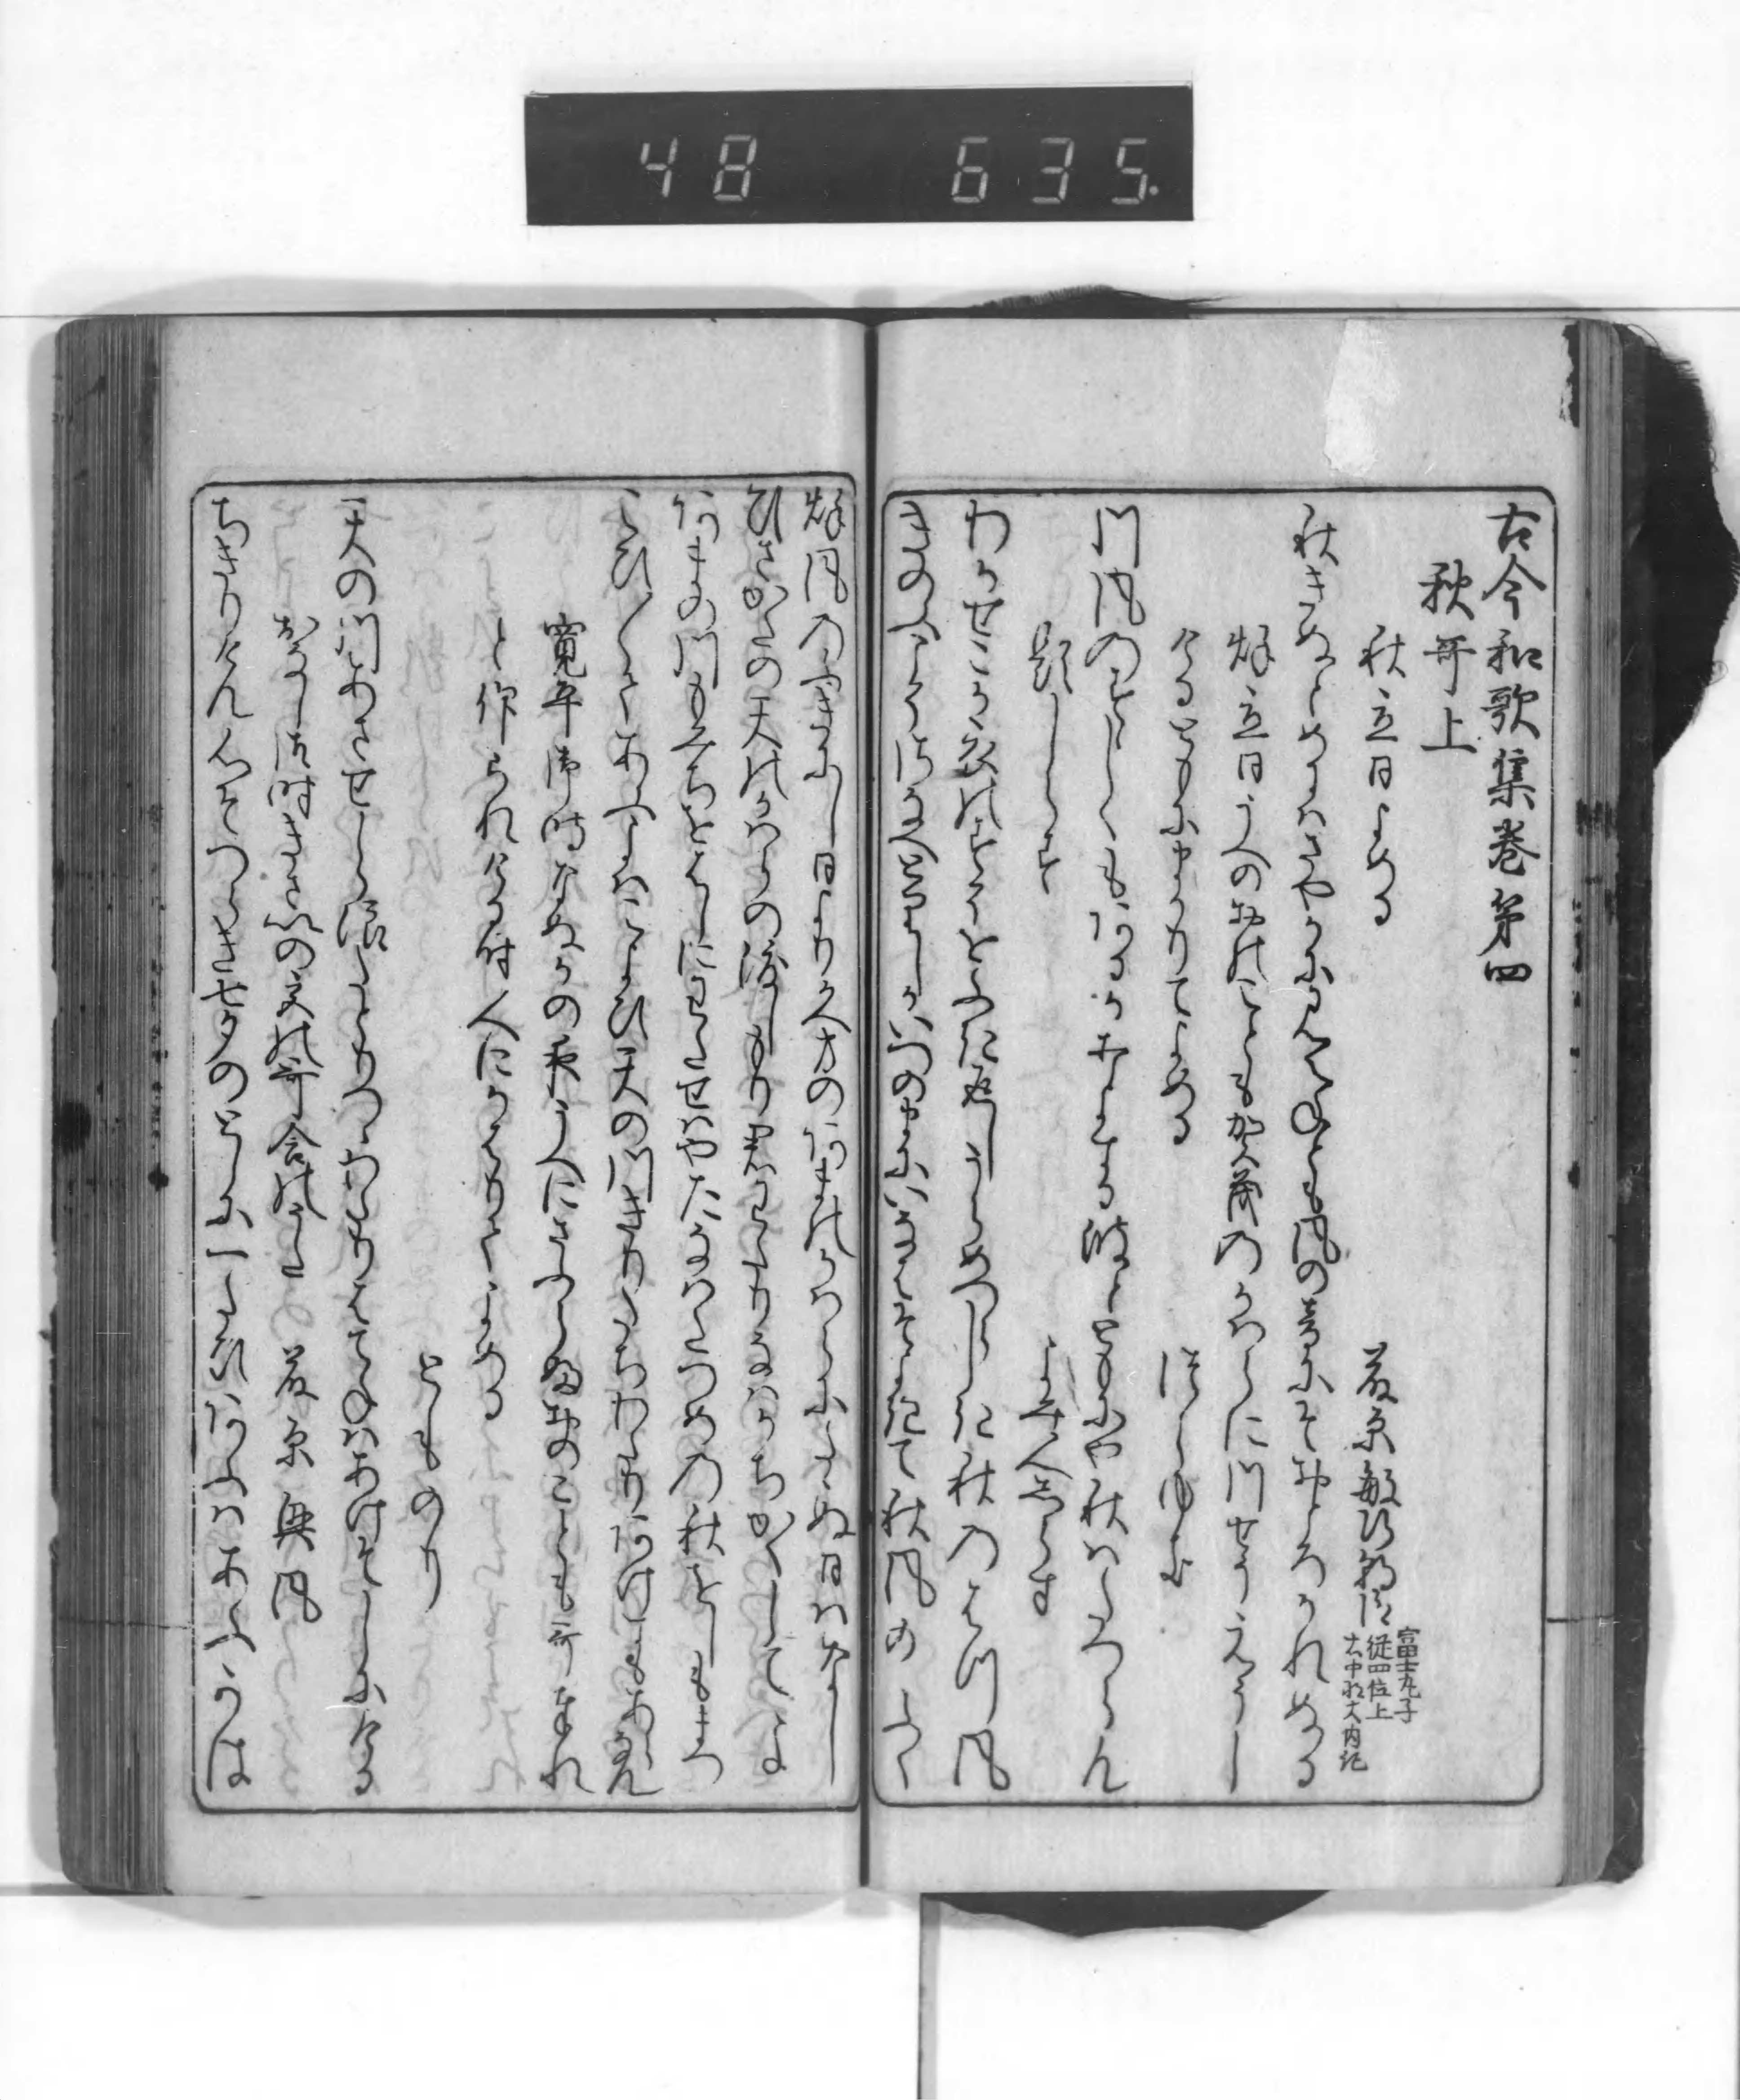 48 635.
古今和歌集巻第四
秋哥上
秋立日よめる
藤原敏行朝臣
富士丸子
従四位上
右中将大内記
秋きぬとめにはさやかにみえねとも風の音にそおとろかれぬる
秋立日うへのおのこともかもの川せうえうし
けるともにまかりてよめる
つらゆき
川風のすゝしくもあるかおもよする波とともにや秋はたつらん
題しらす
よみ人しらす
わかせこか衣のすそを吹返しうらめつらしき秋のはつ風
きのふこそさなへとりしかいつのまにいなはそよきて秋風のふく
秋風のふきにし日より久方のあまのかはらにたゝぬ日はなし
ひさかたの天のかはらの渡しもり君わたりなはかちかくしてよ
あまの川もみちをはしにわたせはやたなはたつめの秋をしもまつ
こひ〳〵てあふよはこよひ天の川きりたちわたりあけすもあらなん
寛平御時なぬかの夜うへにさふらふおのことも哥奉れ
と作られける時人にかはりてよめる
とものり
天の川あさせしら浪たとりつゝわたりはてねはあけそしにける
おなし御時きさいの宮の哥合のうた
藤原興風
ちきりけん心そつらき七夕のとしに一たひあふはあふかは